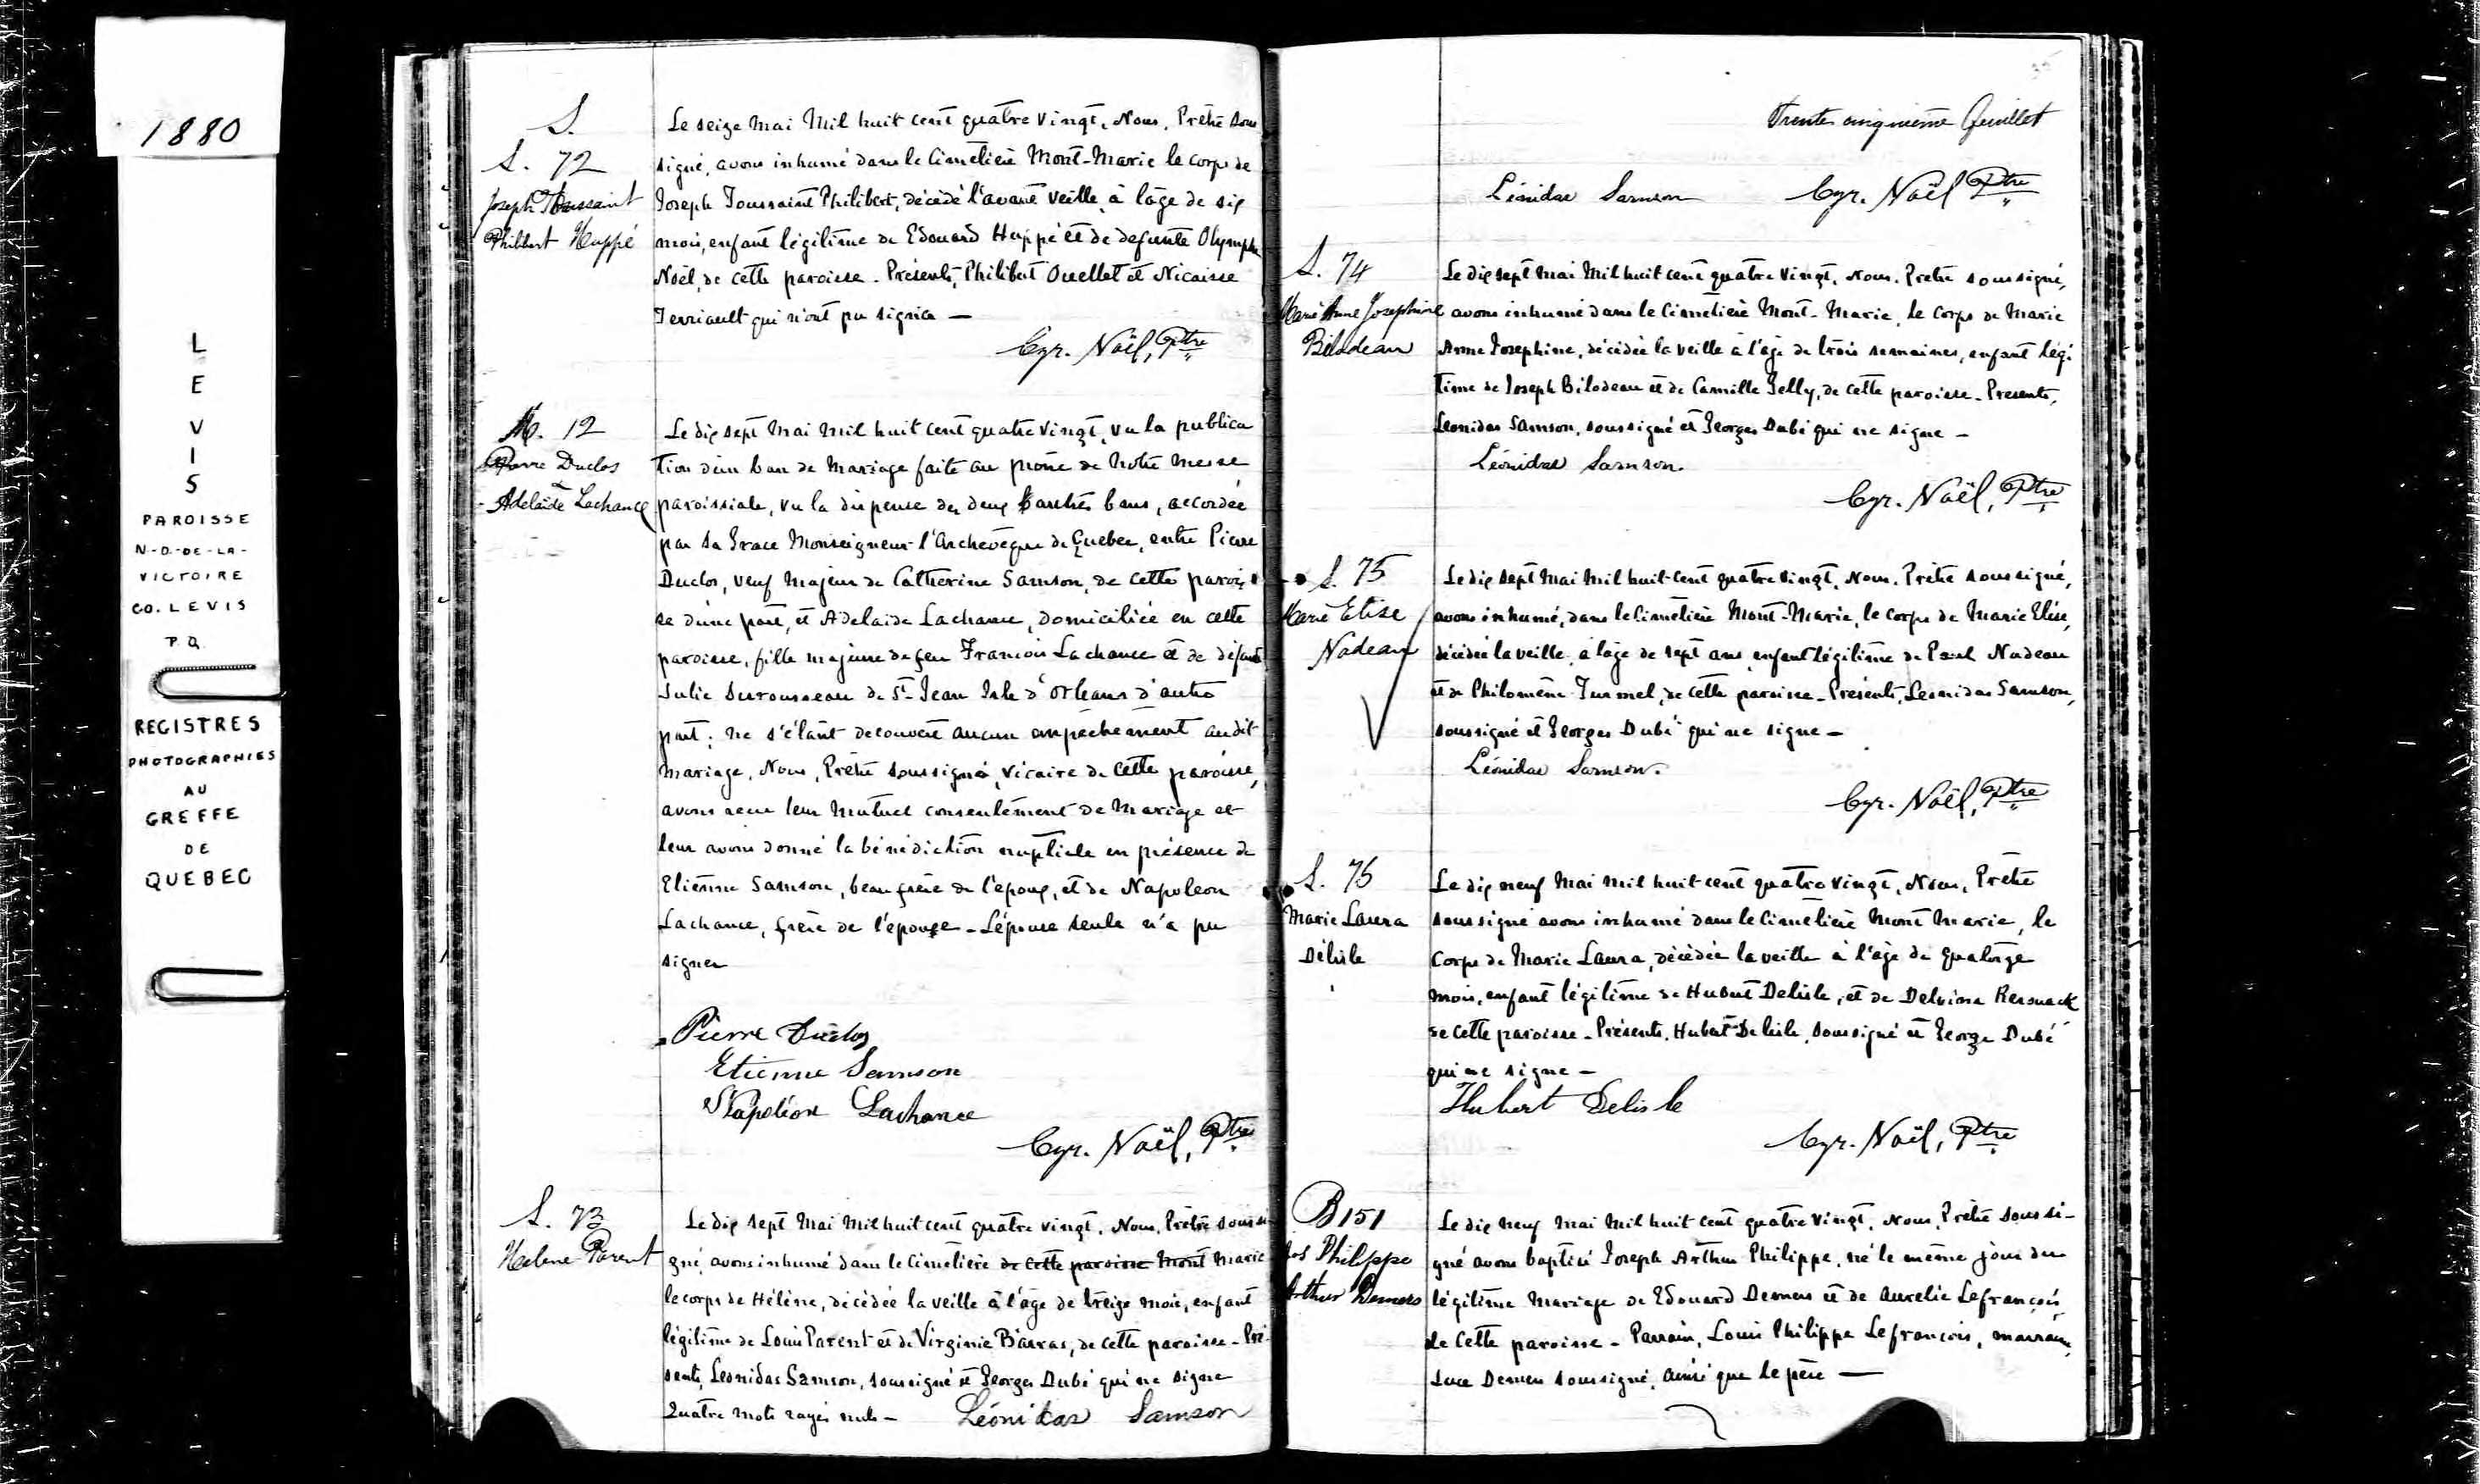 1880
L
E
V
I
S
PAROISSE
N-D-DE-LA-
VICTOIRE
CO. LEVIS
P.Q.
REGISTRES
PHOTOGRAPHIES
AU
GREFFE
DE
QUEBEC
S.
S. 72
Joseph Toussaint
Philibert Huppé
Le seize Mai Mil huit cent quatre vingt, Nous, Prêtre sous
signé, avons inhumé dans le Cimetière Mont-Marie le corps de
Joseph Toussaint Philibert, décédé l'avant veille, à l'âge de six
mois, enfant légitime de Edouard Huppé et de defunte Olymphe
Noël, de cette paroisse. Présents, Philibert Ouellet et Nicaisse
Terriault qui n'ont pu signer —
Cyr. Noël, Ptre
M. 12
Pierre Duclos
&
Adelaïde Lachance
Le dix sept Mai Mil huit cent quatre vingt, vu la publica
tion d'un ban de Mariage faite au prône de Notre Messe
paroissiale, vu la dispense des deux autres bans, accordée
par Sa Grace Monseigneur l'Archevêque de Quebec, entre Pierre
Duclos, veuf majeur de Catherine Samson, de cette parois
se d'une part, et Adelaide Lachance, domiciliée en cette
paroisse, fille majeure de feu Francois Lachance et de défunte
Julie Durousseau de St-Jean Isle d'Orleans d'autre
part; ne s'étant decouvert aucun empêchement audit
mariage, Nous, Prêtre soussigné, Vicaire de cette paroisse,
avons recu leur Mutuel consentement de Mariage et
leur avons donné la bénédiction nuptiale en présence de
Etienne Samson, beau frère de l'époux, et de Napoleon
Lachance, frère de l'épouse - L'épouse seule n'a pu
signer
Pierre Duclos
Etienne Samson
Napoléon Lachance
Cyr. Noël, Ptre
S. 73
Helene Parent
Le dix sept Mai Mil huit cent quatre vingt, Nous, Prêtre soussi-
gné, avons inhumé dans le Cimetière de cette paroisse Mont Marie
le corps de Hélène, décédée la veille à l'âge de treize mois, enfant
légitime de Louis Parent et de Virginie Barras, de cette paroisse - Pré-
sents, Leonidas Samson, soussigné et Georges Dubé qui ne signe
Quatre mots rayés nuls - Léonidas Samson
35
Trente cinquième feuillet
Léonidas Samson Cyr. Noël Ptre
S. 74
Marie Anne Josephine
Bilodeau
Le dix sept Mai Mil huit cent quatre vingt, Nous, Prêtre soussigné,
avons inhumé dans le Cimetière Mont-Marie, le corps de Marie
Anne Josephine, décédée la veille à l'âge de trois semaines, enfant légi
time de Joseph Bilodeau et de Camille Gelly, de cette paroisse - Presents,
Leonidas Samson, soussigné et Georges Dubé qui ne signe -
Léonidas Samson.
Cyr. Noël, Ptre
S. 75
Marie Elise
Nadeau
Le dix sept Mai Mil huit cent quatre vingt, Nous, Prêtre soussigné,
avons inhumé, dans le Cimetière Mont-Marie, le corps de Marie Elise,
décédée la veille, à l'âge de sept ans, enfant légitime de Paul Nadeau
et de Philomène Turmel, de cette paroisse - Présents, Leonidas Samson,
soussigné et Georges Dubé qui ne signe -
Léonidas Samson.
Cyr. Noël, Ptre
S. 76
Marie Laura
Délisle
Le dix neuf Mai Mil huit cent quatre vingt, Nous, Prêtre
soussigné avons inhumé dans le Cimetière Mont Marie, le
Corps de Marie Laura, décédée la veille à l'âge de quatorze
mois, enfant légitime de Hubert Delisle, et de Delvina
de cette paroisse - Présents, Hubert Delisle, soussigné et George Dubé
qui ne signe -
Hubert Delisle
Cyr. Noël, Ptre
B 151
Jos Philippe
Arthur Demers
Le dix neuf Mai Mil huit cent quatre vingt, Nous, Prêtre soussi-
gné avons baptisé Joseph Arthur Philippe, né le même jour du
légitime mariage de Edouard Demers et de Aurelie Lefrançois,
de cette paroisse - Parrain, Louis Philippe Lefrancois, marraine,
Luce Demers soussigné, ainsi que le père —